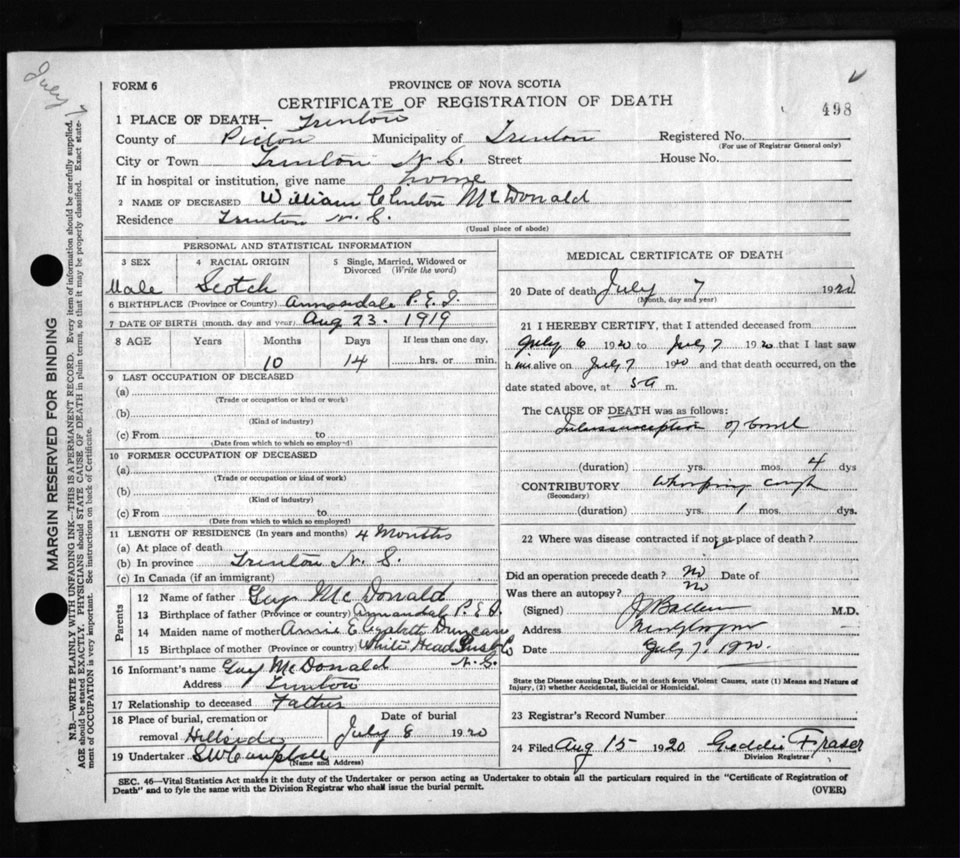 July 7
FORM 6
PROVINCE OF NOVA SCOTIA
CERTIFICATE OF REGISTRATION OF DEATH
498
1 PLACE OF DEATH— Trenton
County of Pictou Municipality of Trenton Registered No.
(For use of Registrar General only)
City or Town Trenton N. S. Street House No.
If in hospital or institution, give name home
2 NAME OF DECEASED William Clinton McDonald
Residence Trenton N. S.
(Usual place of abode)
MARGIN RESERVED FOR BINDING
N.B.—WRITE PLAINLY WITH UNFADING INK—THIS IS A PERMANENT RECORD. Every item of information should be carefully supplied.
AGE should be stated EXACTLY. PHYSICIANS should STATE CAUSE OF DEATH in plain terms, so that it may be properly classified. Exact state-
ment of OCCUPATION is very important. See instructions on back of Certificate.
PERSONAL AND STATISTICAL INFORMATION
3 SEX 4 RACIAL ORIGIN 5 Single, Married, Widowed or
Divorced (Write the word)
Male Scotch
6 BIRTHPLACE (Province or Country) Annandale P. E. I.
7 DATE OF BIRTH (month, day and year) Aug 23. 1919
8 AGE Years Months Days If less than one day,
10 14 hrs. or min.
9 LAST OCCUPATION OF DECEASED
(a)
(Trade or occupation or kind or work)
(b)
(Kind of industry)
(c) From to
(Date from which to which so employed)
10 FORMER OCCUPATION OF DECEASED
(a)
(Trade or occupation or kind of work)
(b)
(Kind of industry)
(c) From to
(Date from which to which so employed)
11 LENGTH OF RESIDENCE (In years and months) 4 Months
(a) At place of death
(b) In province Trenton N. S.
(c) In Canada (if an immigrant)
Parents
12 Name of father Guy McDonald
13 Birthplace of father (Province or country) Annandale P. E. I.
14 Maiden name of mother Annie Elizabeth Duncan
15 Birthplace of mother (Province or country) White Head N. S.
16 Informant's name Guy McDonald
Address Trenton
17 Relationship to deceased Father
18 Place of burial, cremation or Date of burial
removal Hillside July 8 1920
19 Undertaker S W Campbell
(Name and Address)
MEDICAL CERTIFICATE OF DEATH
20 Date of death July 7 1920
(Month, day and year)
21 I HEREBY CERTIFY, that I attended deceased from
July 6 1920 to July 7 1920 that I last saw
him alive on July 7 1920 and that death occurred, on the
date stated above, at 5 a m.
The CAUSE OF DEATH was as follows:
Intussusception of bowel
(duration) yrs. mos. 4 dys
CONTRIBUTORY Whooping cough
(Secondary)
(duration) yrs. 1 mos. dys.
22 Where was disease contracted if not at place of death?
Did an operation precede death? No Date of
Was there an autopsy? No
(Signed) M.D.
Address New Glasgow
Date July 7. 1920
State the Disease causing Death, or in death from Violent Causes, state (1) Means and Nature of
Injury, (2) whether Accidental, Suicidal or Homicidal.
23 Registrar's Record Number
24 Filed Aug 15 1920 Geddie Fraser
Division Registrar
SEC. 46—Vital Statistics Act makes it the duty of the Undertaker or person acting as Undertaker to obtain all the particulars required in the "Certificate of Registration of
Death" and to fyle the same with the Division Registrar who shall issue the burial permit.
(OVER)